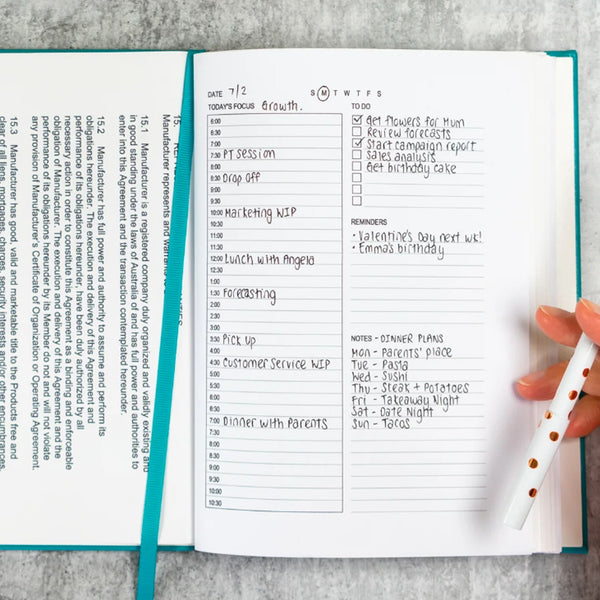 15.
Manufacturer represents and warrants to
15.1 Manufacturer is a registered company duly organized and validly existing and
in good standing under the laws of Australia of and has full power and authorities to
enter into this Agreement and the transaction contemplated hereunder.
15.2 Manufacturer has full power and authority to assume and perform its
obligations hereunder. The execution and delivery of this Agreement and
performance of its obligations hereunder, have been duly authorized by all
necessary action in order to constitute this Agreement as a binding and enforceable
obligation of Manufacturer. The execution and delivery of this Agreement and the
performance of its obligations hereunder by its Member do not and will not violate
any provision of Manufacturer's Certificate of Organization or Operating Agreement.
15.3 Manufacturer has good, valid and marketable title to the Products free and
clear of all liens, mortgages, charges, security interests and/or other encumbrances.
DATE 7/2 S M T W T F S
TODAY'S FOCUS Growth.
6:00
6:30
7:00
7:30 PT session
8:00
8:30 Drop off
9:00
9:30
10:00 Marketing WIP
10:30
11:00
11:30
12:00 Lunch with Angela
12:30
1:00 Forecasting
1:30
2:00
2:30
3:00
3:30 Pick up
4:00
4:30 Customer Service WIP
5:00
5:30
6:00
6:30
7:00 Dinner with Parents
7:30
8:00
8:30
9:00
9:30
10:00
10:30
TO DO
Get flowers for Mum
Review forecasts
Start campaign report
Sales analysis
Get birthday cake
REMINDERS
• Valentine's Day next wk!
• Emma's birthday
NOTES - DINNER PLANS
Mon - Parents' place
Tue - Pasta
Wed - Sushi
Thu - Steak + Potatoes
Fri - Takeaway Night
Sat - Date Night
Sun - Tacos